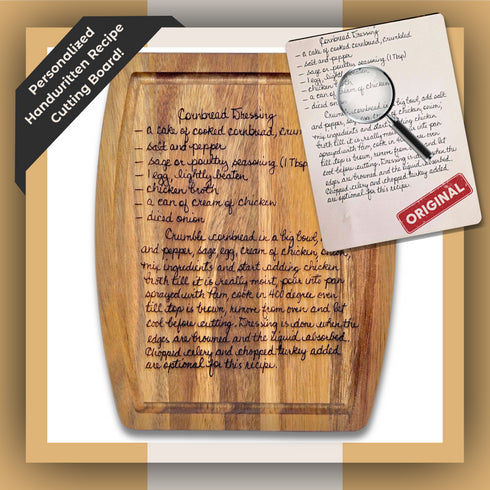 Personalized
Handwritten Recipe
Cutting Board!
Cornbread Dressing
– a cake of cooked cornbread, crum
– salt and pepper
– sage or poultry seasoning (1 Tbsp)
– 1 egg, lightly beaten
– chicken broth
– a can of cream of chicken
– diced onion
Crumble cornbread in a big bowl,
and pepper, sage, egg, cream of chicken, onion,
mix ingredients and start adding chicken
broth till it is really moist, pour into pan
sprayed with Pam, cook in 400 degree oven
till top is brown, remove from oven and let
cool before cutting. Dressing is done when the
edges are browned and the liquid absorbed.
Chopped celery and chopped turkey added
are optional for this recipe.
Cornbread Dressing
– a cake of cooked cornbread, crumbled
– salt and pepper
– sage or poultry seasoning (1 Tbsp)
– 1 egg, lightly
– chicken
– a can of cream of chicken
– diced onion
Crumble cornbread in a big bowl, add salt
and pepper, sage, egg, cream of chicken, onion,
mix ingredients and start adding chicken
broth till it is really moist, pour into pan
sprayed with Pam, cook in 400 degree oven
till top is brown, remove from oven and let
cool before cutting. Dressing is done when the
edges are browned and the liquid absorbed.
Chopped celery and chopped turkey added
are optional for this recipe.
ORIGINAL